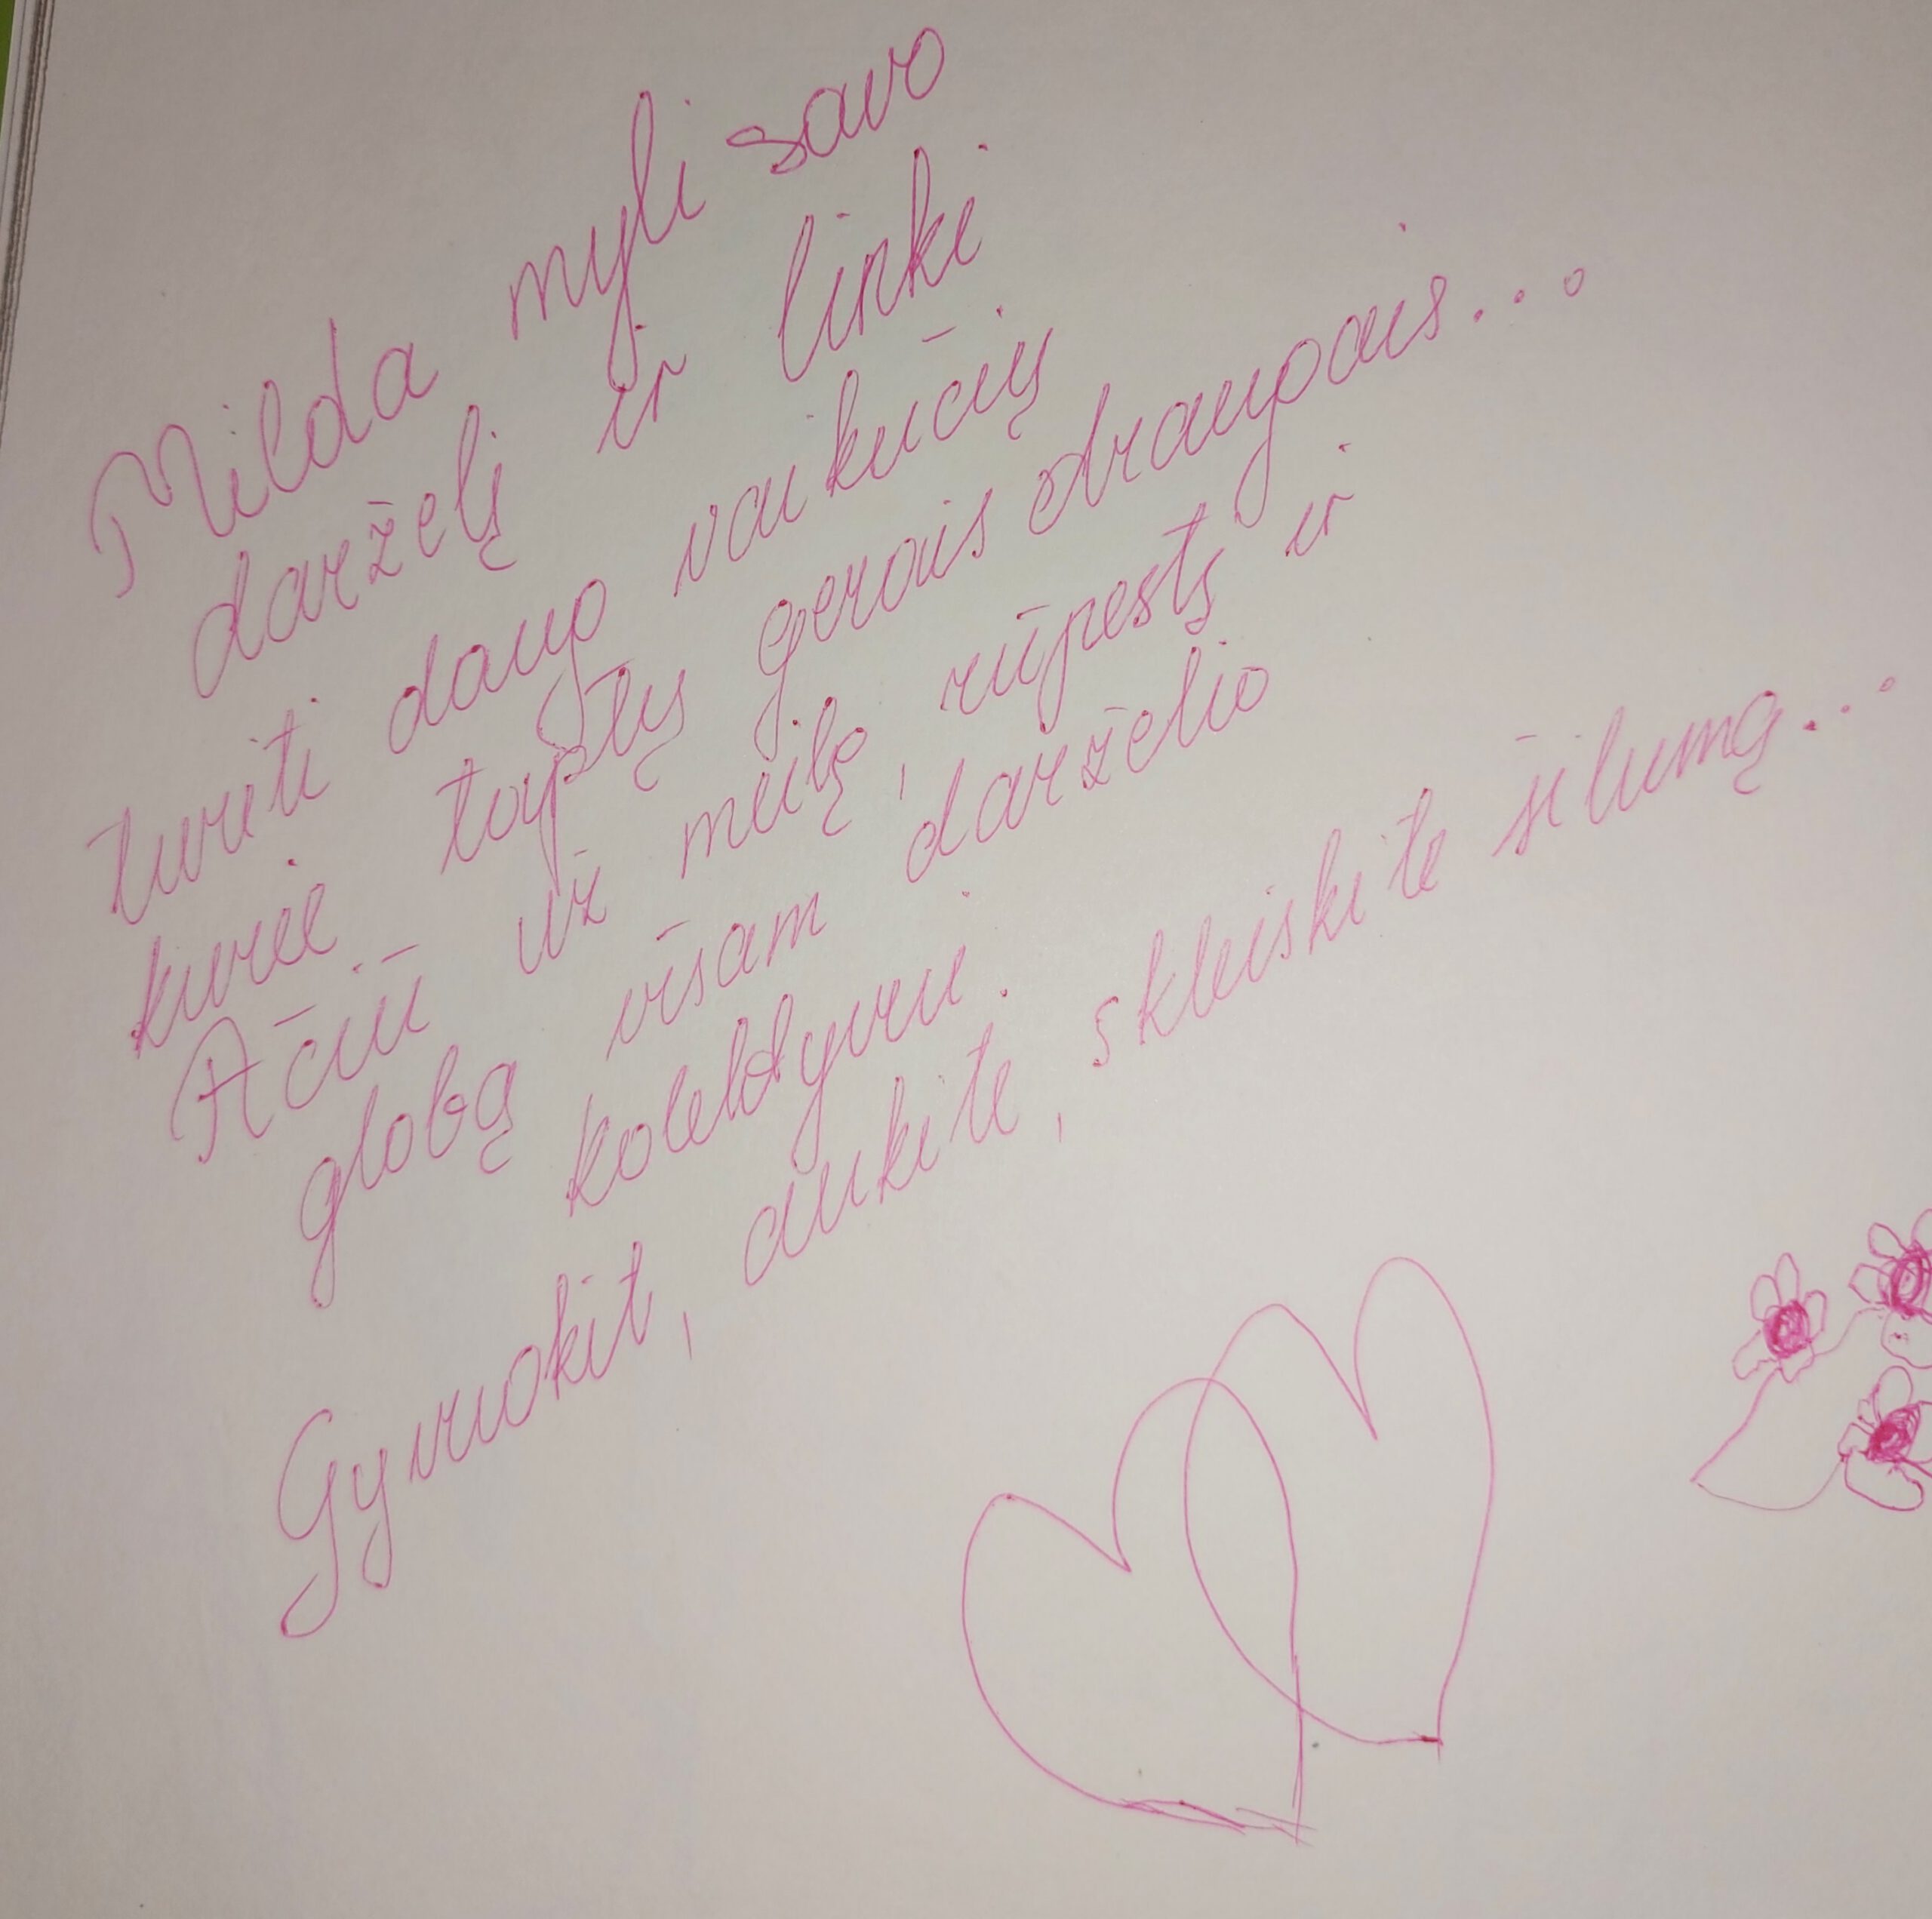 Milda myli savo
darželį ir linki
turėti daug vaikučių
kurie taptų gerais draugais...
Ačiū už meilę, rūpestį ir
globą visam darželio
kolektyvui.
Gyvuokit, aukite, skleiskite šilumą...